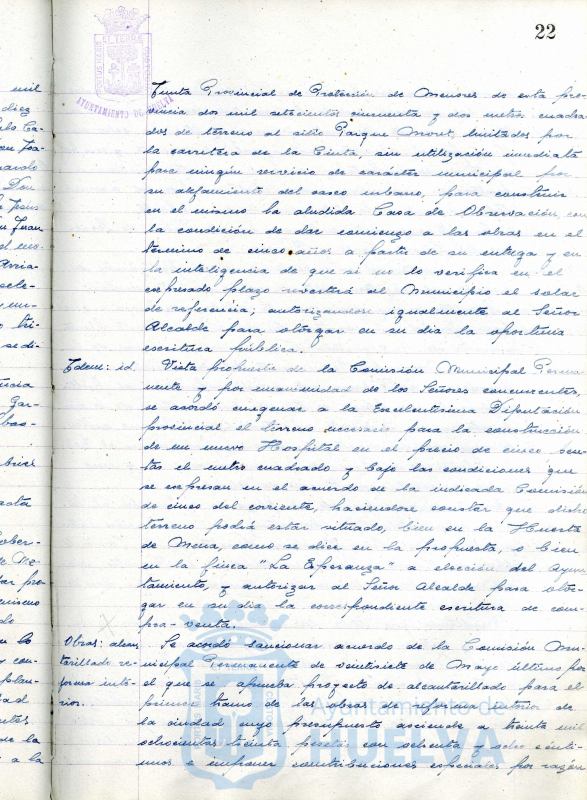 22
AYUNTAMIENTO DE HUELVA
Junta Provincial de Protección de Menores de esta pro-
vincia dos mil setecientos cincuenta y dos metros cuadra-
dos de terreno al sitio Parque Moret, limitados por
la carretera de la Cinta, sin utilización inmediata
para ningún servicio de carácter municipal por
su alejamiento del casco urbano, para construir
en el mismo la aludida Casa de Observación, con
la condición de dar comienzo a las obras en el
término de cinco años a partir de su entrega y en
la inteligencia de que si no lo verifica en el
expresado plazo revertirá al Municipio el solar
de referencia; autorizandose igualmente al Señor
Alcalde para otorgar en su día la oportuna
escritura pública.
Idem: id. Vista propuesta de la Comisión Municipal Perma-
nente y por unanimidad de los Señores concurrentes,
se acordó enagenar a la Excelentísima Diputación
provincial el terreno necesario para la construcción
de un nuevo Hospital en el precio de cinco pese-
tas el metro cuadrado y bajo las condiciones que
se expresan en el acuerdo de la indicada Comisión
de cinco del corriente, haciendose constar que dicho
terreno podrá estar situado, bien en la Huerta
de Mena, como se dice en la propuesta, o bien
en la finca "La Esperanza" a elección del Ayun-
tamiento, y autorizar al Señor Alcalde para otor-
gar en su día la correspondiente escritura de com-
pra-venta.
Obras: alcan- Se acordó sancionar acuerdo de la Comisión Mu-
tarillado re- nicipal Permanente de veintisiete de Mayo último por
forma inte- el que se aprueba proyecto de alcantarillado para el
rior. primer tramo de las obras de reforma interior de
la ciudad cuyo presupuesto asciende a treinta mil
ochocientas treinta pesetas con ochenta y ocho cénti-
mos e imponer contribuciones especiales por razón
Ayuntamiento de
HUELVA